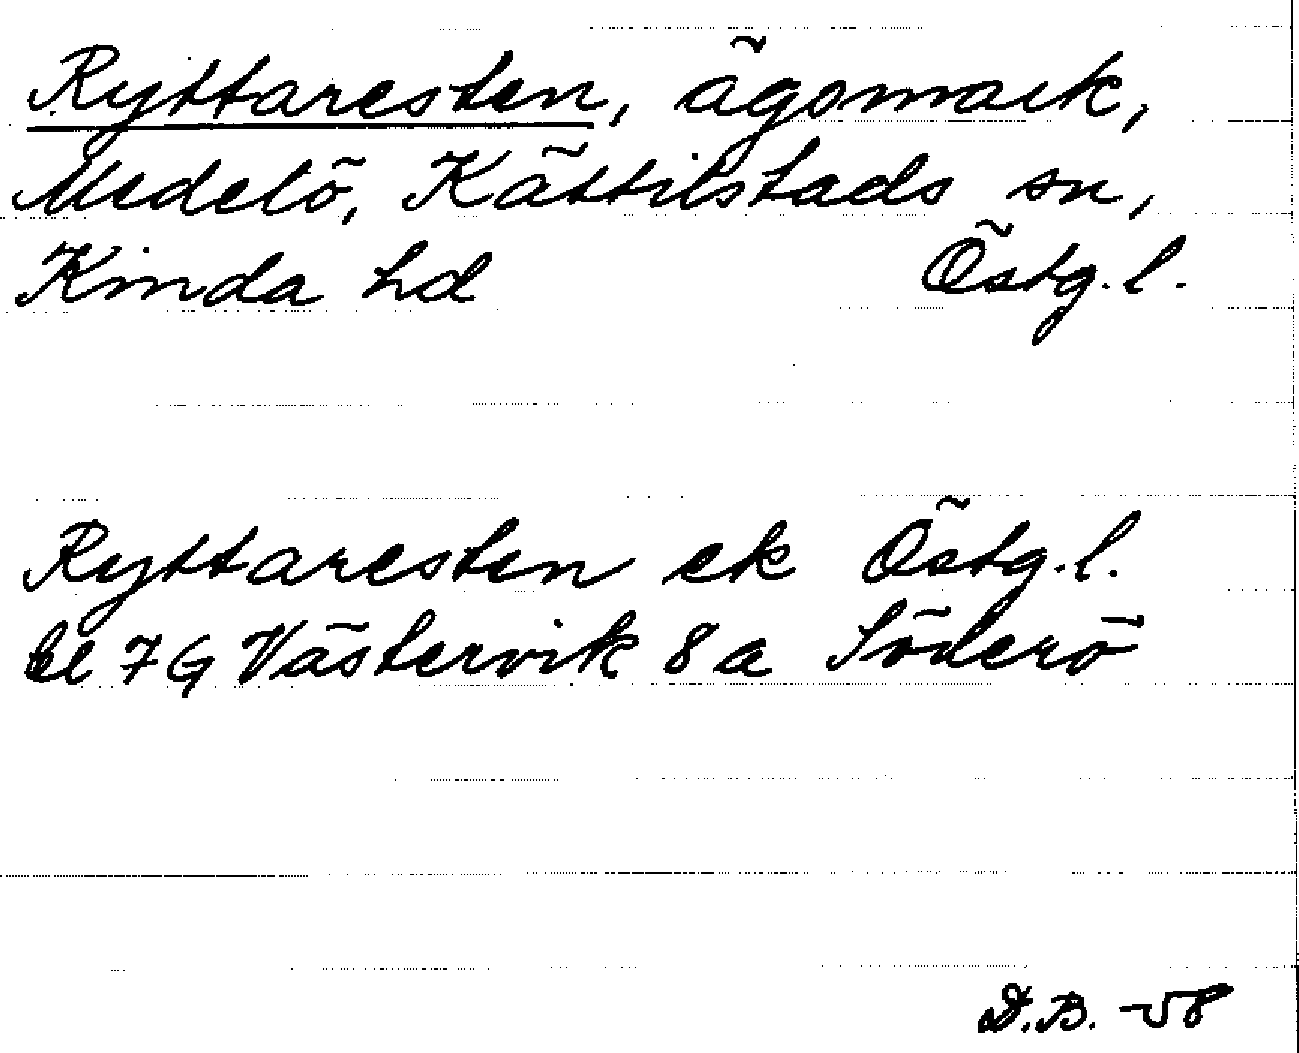 Ryttaresten, ägomark,
Medelö, Kättilstads sn,
Kinda hd Östg.l.
Ryttaresten ek Östg.l.
bl 7G Västervik 8a Söderö
D.B. -58